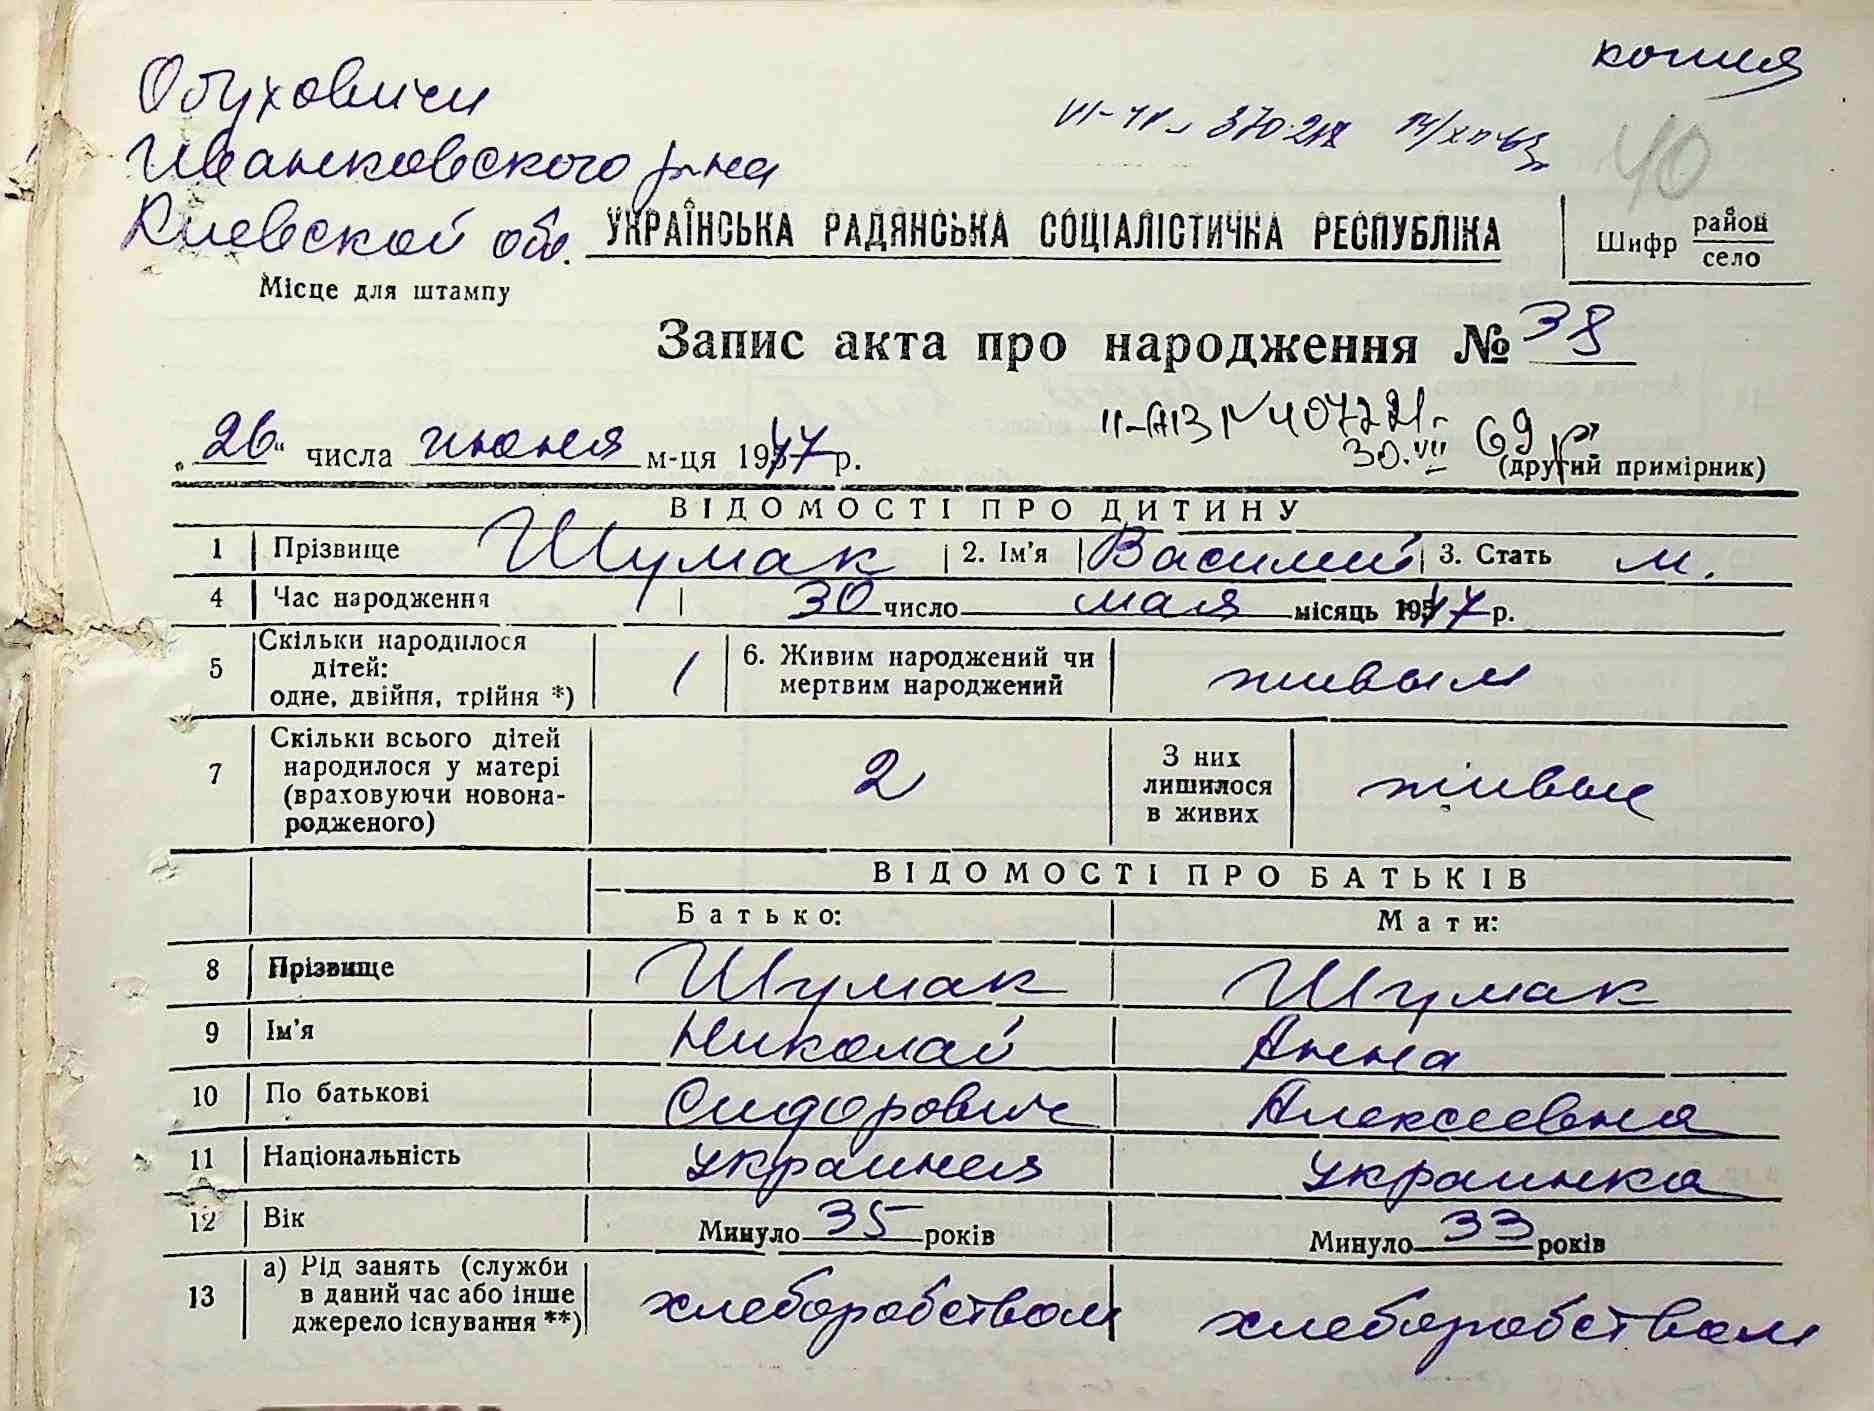 копия
Обуховичи
Иванковского р-на
Киевской обл.
40
УКРАЇНСЬКА РАДЯНСЬКА СОЦІАЛІСТИЧНА РЕСПУБЛІКА
Шифр район
село
Місце для штампу
Запис акта про народження № 38
II-АЗ № 407221
30.VII 69 р
„26" числа июня м-ця 1947 р.
(другий примірник)
ВІДОМОСТІ ПРО ДИТИНУ
1 Прізвище Шумак 2. Ім'я Василий 3. Стать м.
4 Час народження 30 число мая місяць 1947 р.
5 Скільки народилося дітей: одне, двійня, трійня *) 1 6. Живим народжений чи мертвим народжений живым
7 Скільки всього дітей народилося у матері (враховуючи новонародженого) 2 З них лишилося в живих живые
ВІДОМОСТІ ПРО БАТЬКІВ
Батько: Мати:
8 Прізвище Шумак Шумак
9 Ім'я Николай Анна
10 По батькові Сидорович Алексеевна
11 Національність украинец украинка
12 Вік Минуло 35 років Минуло 33 років
13 а) Рід занять (служби в даний час або інше джерело існування **) хлеборобством хлеборобством